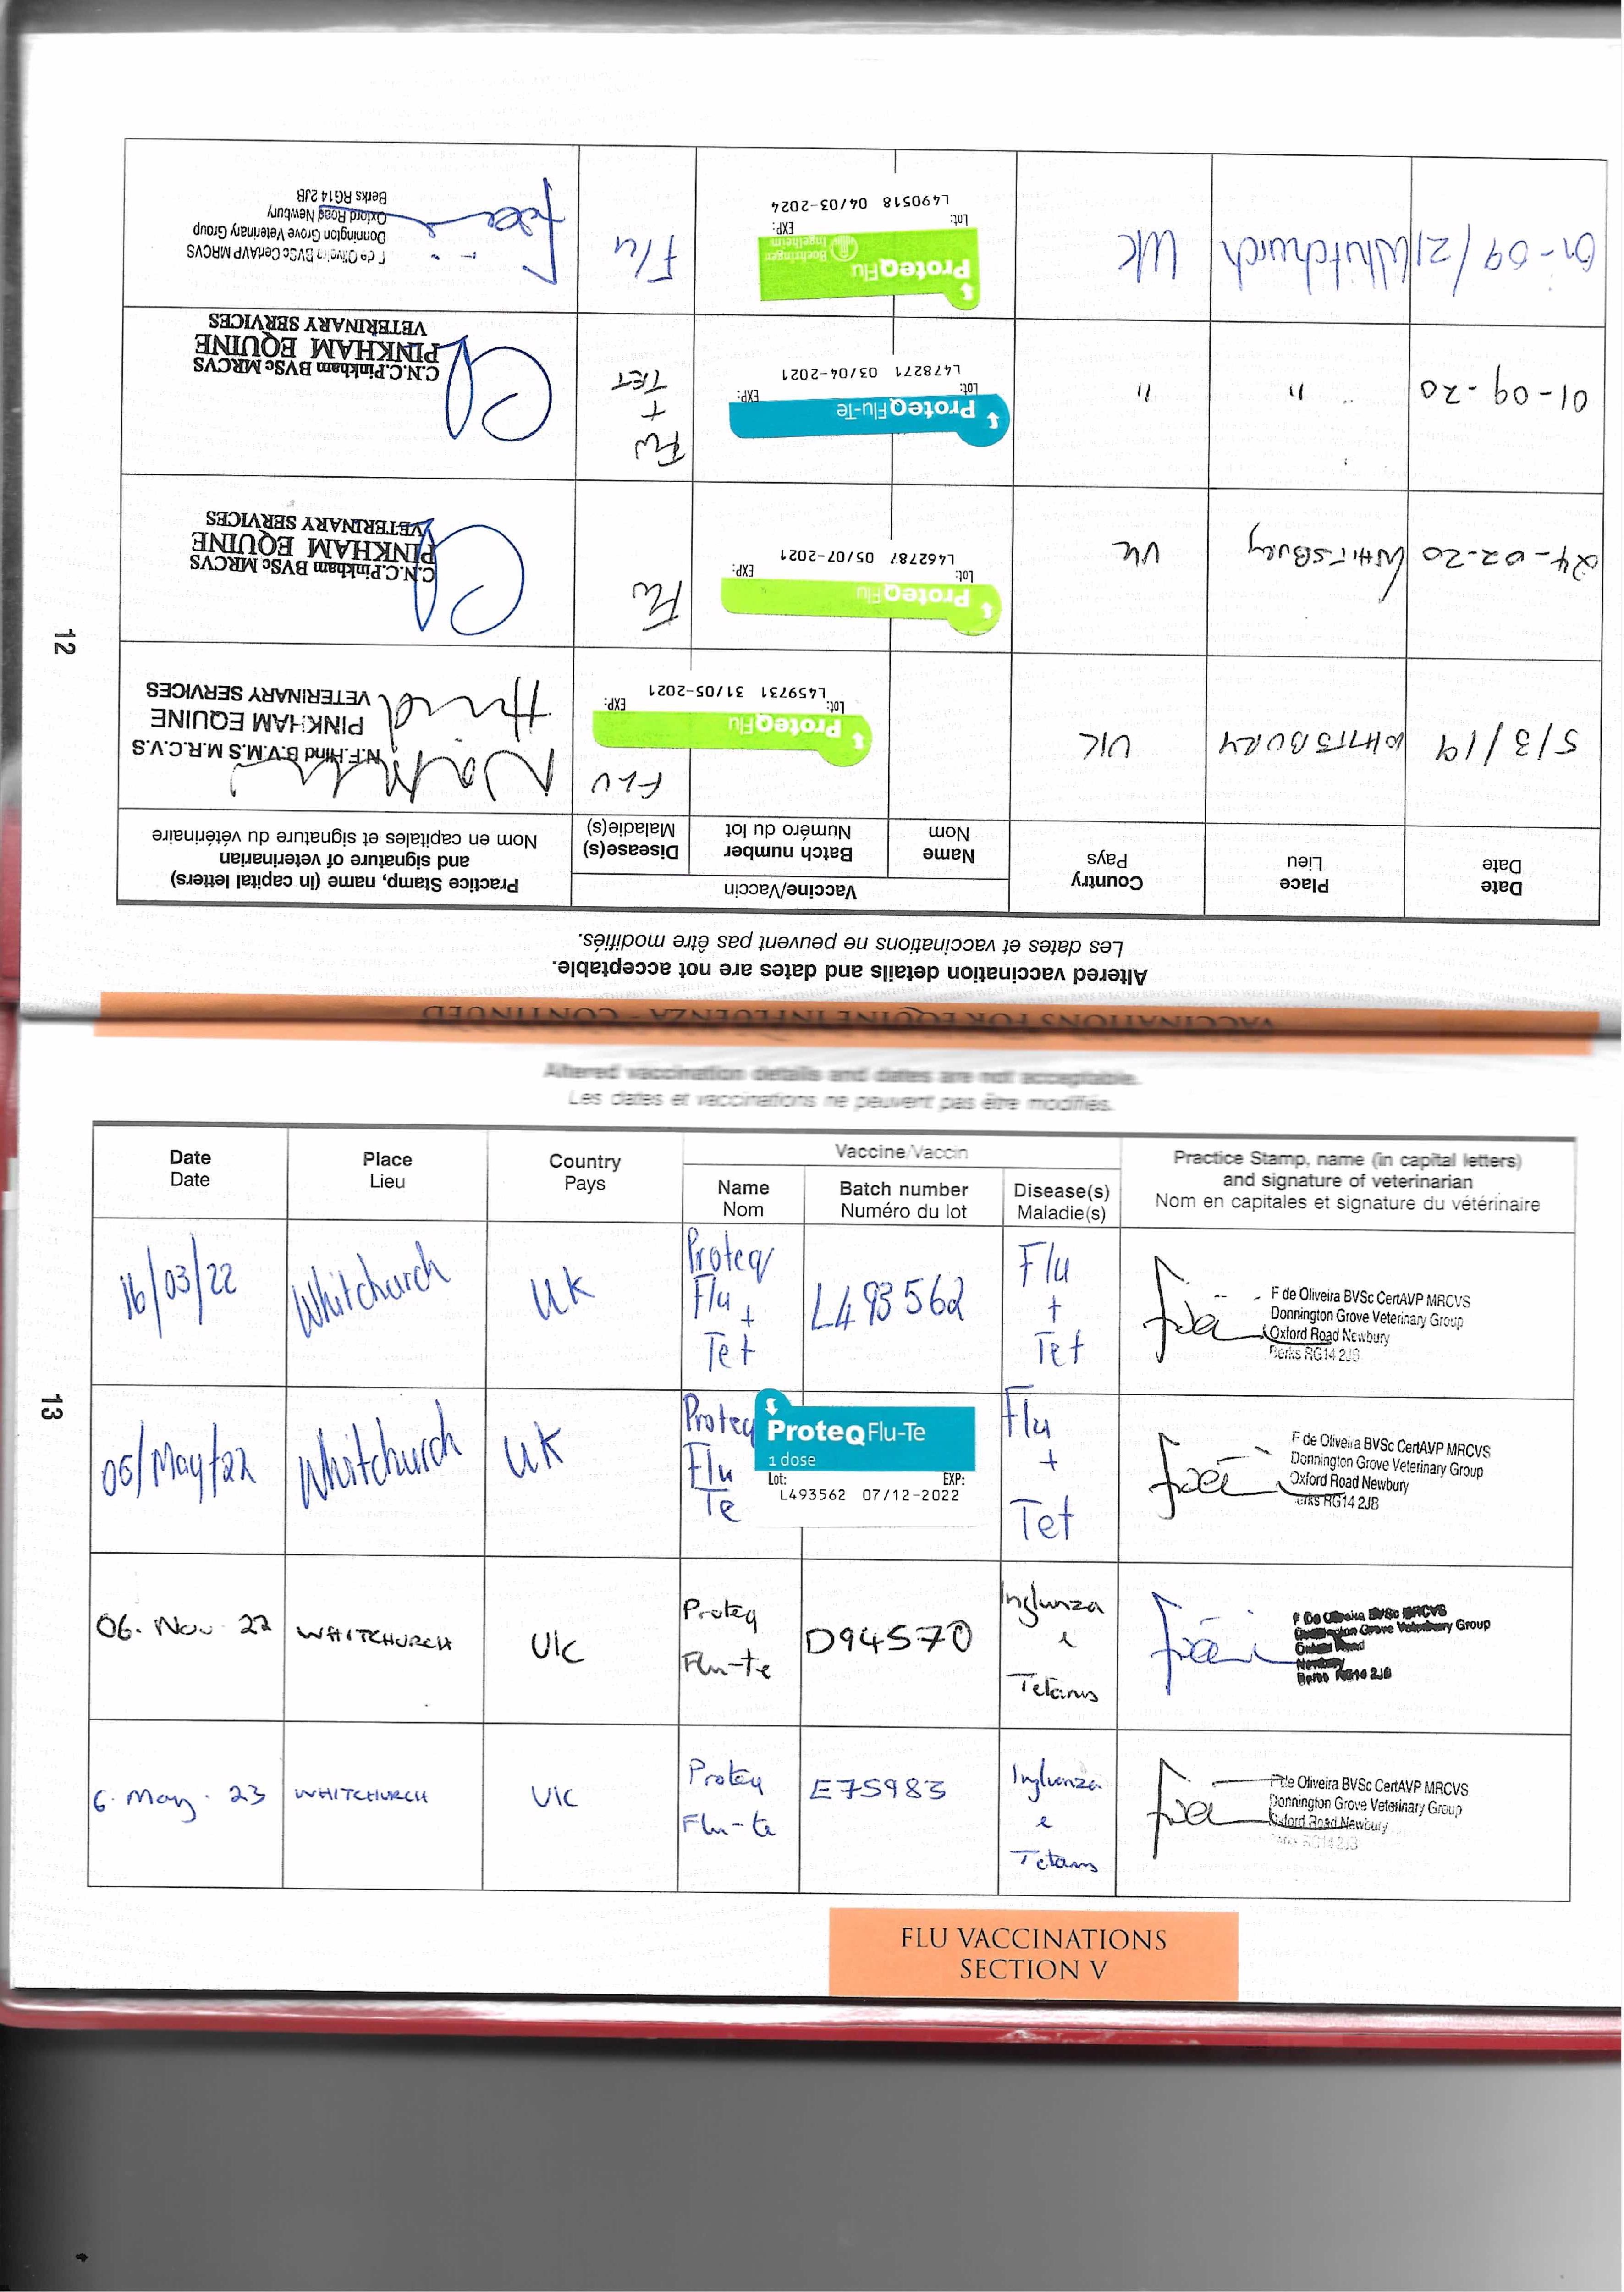 12
VACCINATIONS FOR EQUINE INFLUENZA - CONTINUED
Altered vaccination details and dates are not acceptable.
Les dates et vaccinations ne peuvent pas être modifiés.
Date
Date
Place
Lieu
Country
Pays
Vaccine/Vaccin
Name
Nom
Batch number
Numéro du lot
Disease(s)
Maladie(s)
Practice Stamp, name (in capital letters)
and signature of veterinarian
Nom en capitales et signature du vétérinaire
5/3/19
WHITSBURY
UK
ProteqFlu
Lot: EXP:
L459731 31/05-2021
FLU
N.F.Hind B.V.M.S M.R.C.V.S
PINKHAM EQUINE
VETERINARY SERVICES
24-02-20
WHITSBURY
UK
ProteqFlu
Lot: EXP:
L462787 05/07-2021
Flu
C.N.C.Pinkham BVSc MRCVS
PINKHAM EQUINE
VETERINARY SERVICES
01-09-20
"
"
ProteqFlu-Te
Lot: EXP:
L478271 03/04-2021
Flu
+
TET
C.N.C.Pinkham BVSc MRCVS
PINKHAM EQUINE
VETERINARY SERVICES
01-09/21
Whitchurch
UK
ProteqFlu
Boehringer
Ingelheim
Lot: EXP:
L490518 04/03-2024
Flu
F de Oliveira BVSc CertAVP MRCVS
Donnington Grove Veterinary Group
Oxford Road Newbury
Berks RG14 2JB
13
Altered vaccination details and dates are not acceptable.
Les dates et vaccinations ne peuvent pas être modifiés.
Date
Date
Place
Lieu
Country
Pays
Vaccine/Vaccin
Name
Nom
Batch number
Numéro du lot
Disease(s)
Maladie(s)
Practice Stamp, name (in capital letters)
and signature of veterinarian
Nom en capitales et signature du vétérinaire
16/03/22
Whitchurch
UK
Proteq
Flu +
Tet
L493562
Flu
+
Tet
F de Oliveira BVSc CertAVP MRCVS
Donnington Grove Veterinary Group
Oxford Road Newbury
Berks RG14 2JB
05/May/22
Whitchurch
UK
Proteq
Flu
Te
ProteqFlu-Te
1 dose
Lot: EXP:
L493562 07/12-2022
Flu
+
Tet
F de Oliveira BVSc CertAVP MRCVS
Donnington Grove Veterinary Group
Oxford Road Newbury
Berks RG14 2JB
06. Nov 22
WHITCHURCH
UK
Proteq
Flu-te
D94570
Influnza
e
Tetanus
F De Oliveira BVSc MRCVS
Donnington Grove Veterinary Group
Oxford Road
Newbury
Berks RG14 2JB
6. May. 23
WHITCHURCH
UK
Proteq
Flu-te
E75983
Influenza
e
Tetanus
F de Oliveira BVSc CertAVP MRCVS
Donnington Grove Veterinary Group
Oxford Road Newbury
Berks RG14 2JB
FLU VACCINATIONS
SECTION V